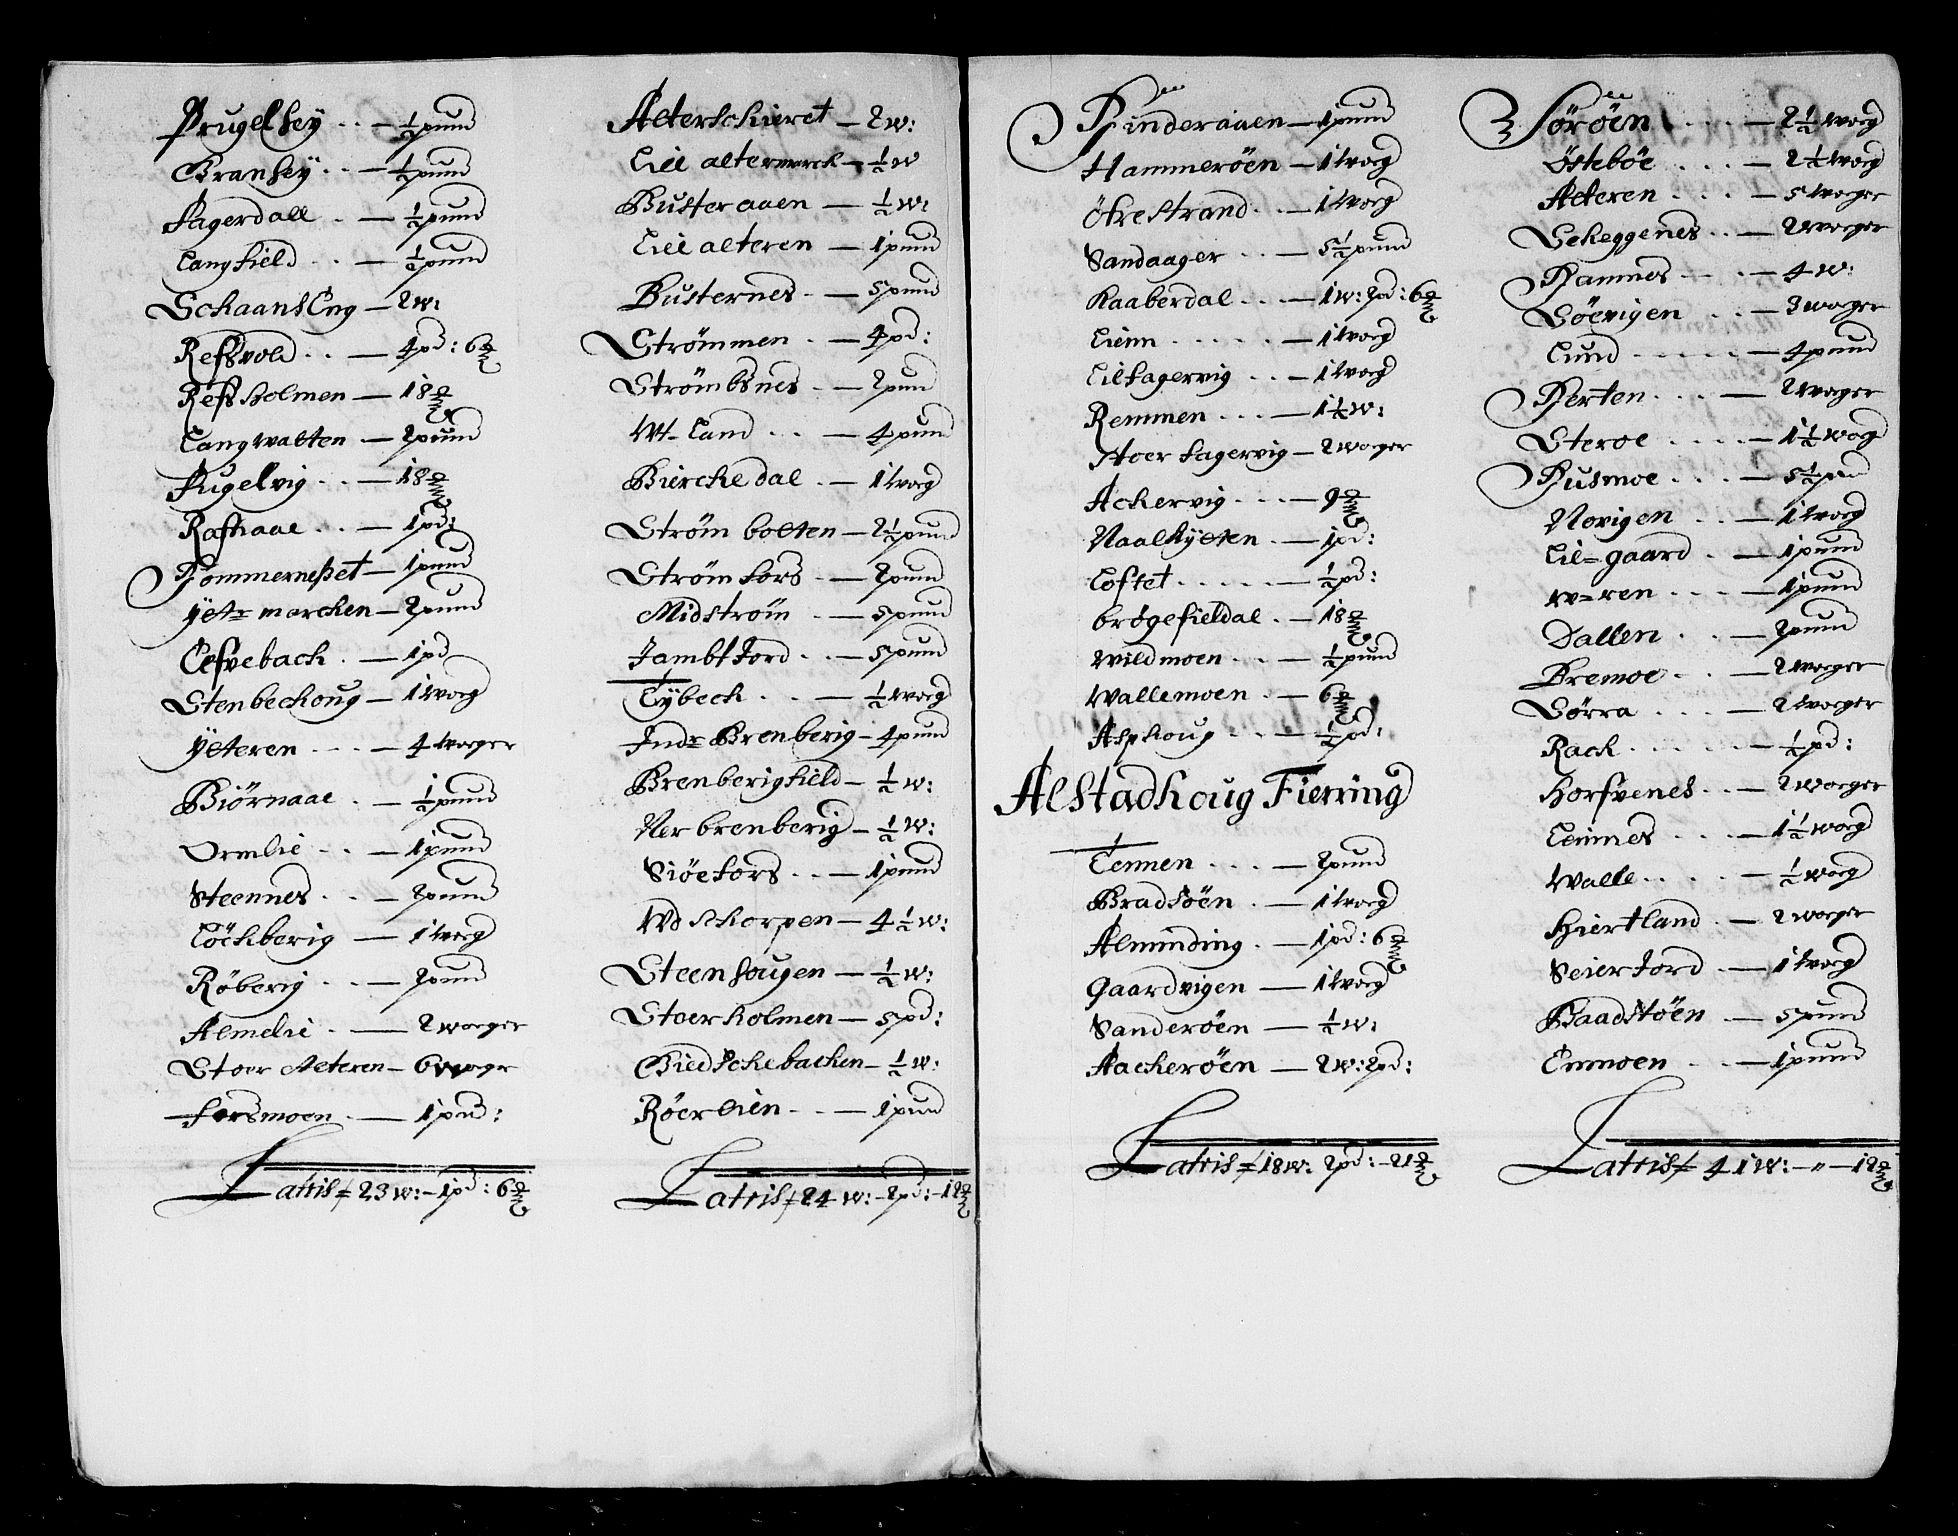 Prugelhey - - - ½ pund
Granhey - - - ½ pund
Fagerdall - - ½ pund
Langfield - - - ½ pund
SchaansEng - 2 w:
Refsvold - - - 4 pd: 6 ℔
Refsholmen - 18 ℔
Langvatten - 2 pund
Fugelvig - - - 18 ℔
Rafhaae - - - 1 pd:
Hommerneset - 1 pund
Ytr marchen - 2 pund
Lefvebach - - 1 pd
Stenbechoug - 1 Woeg
Ÿtteren - - - 4 woeger
Biörnaae - - ½ pund
Ormlie - - - 1 pund
Steennes - - 2 pund
Löchberig - 1 Woeg
Röberig - - - 2 pund
Almelie - - 2 woeger
Stoer Alteren - 6 woger
Forsmoen - - 1 pnd:
Latris ƒ 23 w: - 1 pd: 6 ℔
Alterschieret - 2 w:
Liil altermarch - ½ w
Busteraaen - ½ w:
Liil alteren - 1 pund
Busternes - - 5 pund
Strömmen - - 4 pd:
Strömbsnes - - 2 pund
Wt-Land - - - 4 pund
Bierchedal - - 1 Woeg
Ström botten - 2½ pund
Strömfors - - 2 pund
Midström - - 5 pund
Jambtjord - - 5 pund
Tÿbech - - - ½ Woeg
Indr Brenberig - 4 pund
Brenberigfield - ½ w:
Ner brenberig - ½ w:
Siöefors - - - 1 pund
Wd skorpen - 4½ w:
Steenhougen - ½ w:
Stoerholmen - 5 pd:
Giedschebachen - ½ w:
Röerlien - - - 1 pund
Latris ƒ 24 w: - 2 pd: - 12 ℔
Hinderaaen - 1 pund
Hammeröen - 1 Woeg
Öfrestrand - - 1 Woeg
Sandaager - - - 5½ pund
Kaaberdal - - - 1 w: 2 pd: 6 ℔
Lienn - - - - - 1 Woeg
Lilfagervig - - - 1 Woeg
Remmen - - - - 1½ w:
Stoer fagervig - 2 woeger
Achervig - - - - 9 ℔
Naalkÿtten - - 1 pd:
Loftet - - - - - ½ pd:
brögefieldal - - 18 ℔
Wildmoen - - - ½ pund
Wallemoen - - 6 ℔
Asphoug - - - - ½ pd:
Alstadhoug Fierring
Tennen - - - - 2 pund
Bradsöen - - 1 Woeg
Alminding - - 1 pd: 6 ℔
Gaardvigen - 1 Woeg
Sanderöen - ½ w:
Aacheröen - 2 w: 2 pd:
Latris ƒ 18 w: 2 pd: - 21 ℔
Söröen - - - - 2½ woeg
Östeböe - - - - 2½ woeg
Alteren - - - - 5 woeger
Scheggenes - - - 2 woeger
Hamnes - - - - 4 w:
Söevigen - - - 3 woeger
Lund - - - - - - 4 pund
Hierten - - - - 2 woger
Steroe - - - - - 1½ wog
Husmoe - - - - 5½ pnd
Novigen - - - 1 Woeg
Lil=gaard - - 1 pund
w=ren - - - - 1 pund
Dallen - - - 2 pund
Bremoe - - - 2 woeger
Sörra - - - - 2 woeger
Rach - - - - - ½ pd:
Horfvenes - - - 2 Woeger
Leinnes - - - - 1½ woeg
Walle - - - - - ½ woeg
Hiertland - - 2 woeger
Seierford - - 1 Woeg
Baadstöen - - 5 pund
Enmoen - - - 1 pund
Latris ƒ 41 w: - " - 12 ℔